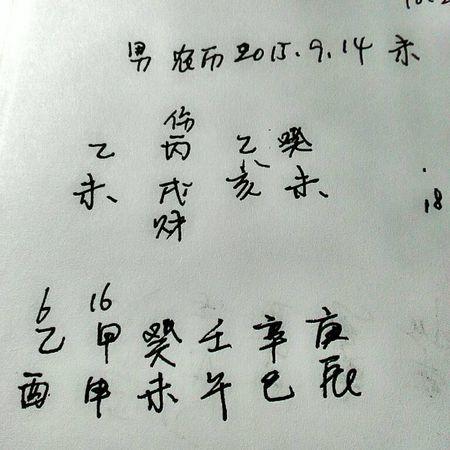 男 农历2015.9.14 未
伤
乙 丙 乙 癸
未 戌 亥 未
财
18
6 16
乙 甲 癸 壬 辛 庚
酉 申 未 午 巳 辰